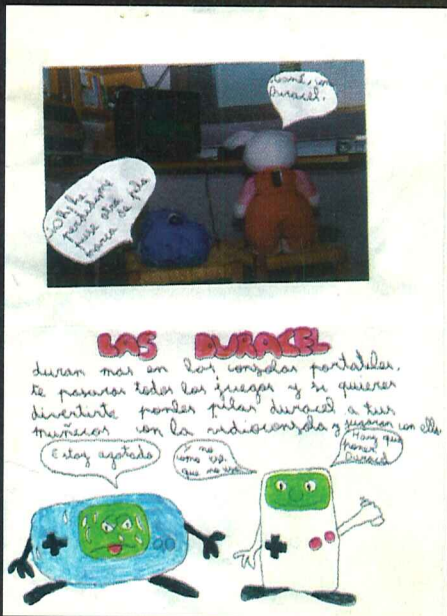 Gané, con
Duracel.
¡Oh! he
perdido por
puse otra
marca de pila
LAS DURACEL
duran mas en las consolas portatiles.
te pasaras todos los juegos y si quieres
divertirte pondes pilas duracel a tus
muñecos con la vidioconsola y jugaran con ella.
Estoy agotado
Y no
como yo.
que no uso
Hay que
poner
Duracel